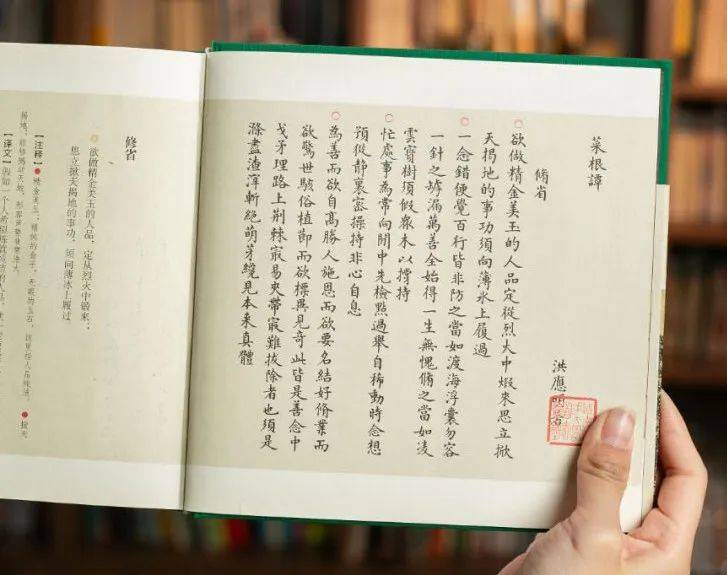 菜根譚
脩省
洪應明
欲做精金美玉的人品定從烈火中煅來思立掀
天揭地的事功須向薄氷上履過
一念錯便覺百行皆非防之當如渡海浮囊勿容
一針之罅漏萬善全始得一生無愧脩之當如凌
雲寶樹須假衆木以撐持
忙處事為常向閒中先檢點過舉自稀動時念想
預從靜裏密操持非心自息
為善而欲自髙勝人施恩而欲要名結好脩業而
欲驚世駭俗植節而欲標異見奇此皆是善念中
戈矛理路上荆棘㝡易夾帶㝡難拔除者也須是
滌盡渣滓斬絕萌芽纔見本來真體
修省
欲做精金美玉的人品，定从烈火中煅来；
思立掀天揭地的事功，须向薄冰上履过
【注释】精金美玉：精纯的金子，无瑕的玉石，这里指人品纯洁。掀天
揭地：
【译文】假如一个人希望